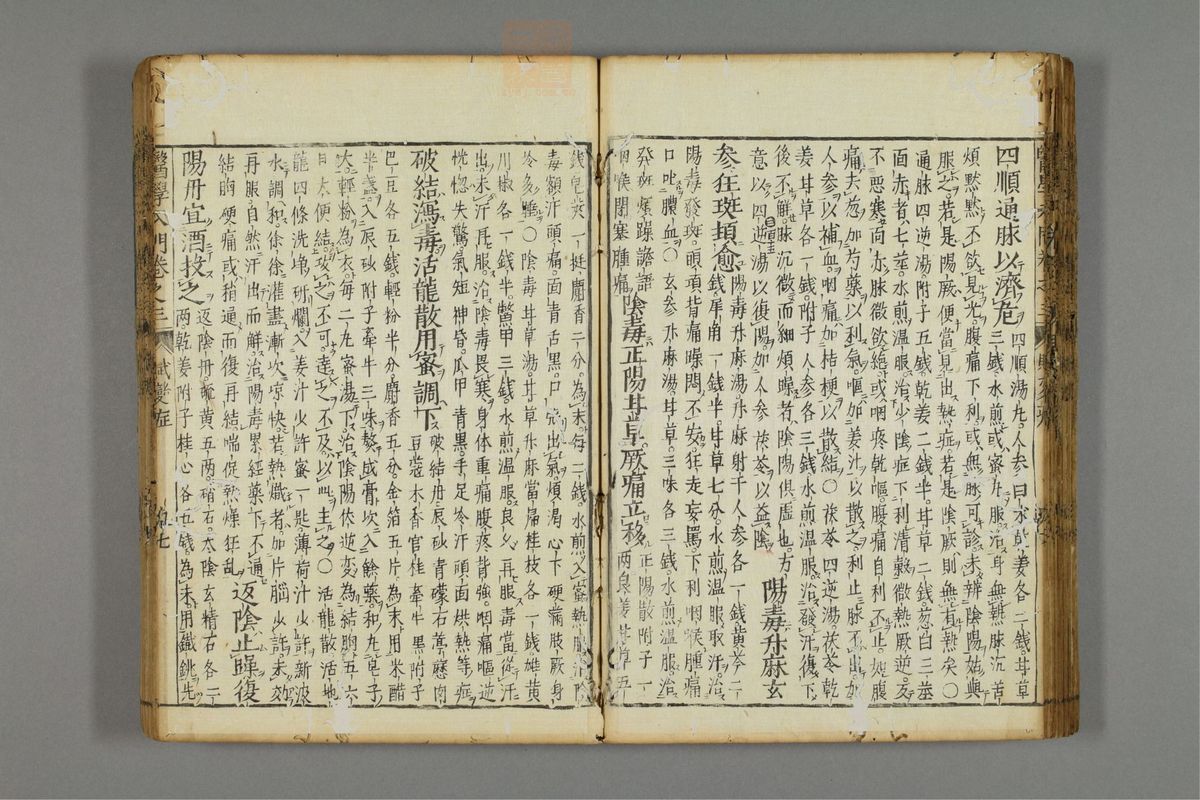 四順通脉以濟危 四順湯九。人参白朮乾姜各二錢。甘草
三錢。水煎。或蜜丸服。治耳無熱脉沉。苦
煩。黙黙不欲見光。腹痛下利。或無脉可診。未辨陰陽。姑與
服之。若是陽厥。便當見出熱症。若是陰厥。則無有熱矣〇
通脉四逆湯附子五錢乾姜二錢半。甘草二錢。葱白三莖
面赤者七莖。水煎温服。治少陰症下利清穀。微熱厥逆。反
不悪寒。面赤脉微欲絶。或咽疼乾嘔。腹痛自利不止。如腹
痛去葱加芍藥以利氣。嘔加姜汁以散之。利止脉不出。加
人参以補血。咽痛加桔梗以散結〇茯苓四逆湯。茯苓乾
姜甘草各一錢。附子人参各三錢。水煎温服。治發汗復下
後不解。脉沉微而細煩躁者。陰陽倶虚也。方
意以四逆湯以復陽。加人参茯苓以益陰 陽毒升麻玄
参狂斑頓愈 陽毒升麻湯。升麻射干人参各一錢黄芩二
錢。犀角一錢半。甘草七分。水煎温服。取汗。治
陽毒發斑。頭項背痛。躁悶不安。狂走妄罵。下利咽喉腫痛
口吐膿血〇玄参升麻湯。甘草。三味各三錢水煎温服。治
發斑煩躁譫語
咽喉閉塞腫痛 陰毒正陽甘草厥痛立移 正陽散附子一
両良姜甘草五
錢皂莢一挺麝香二分。為末。毎二錢。水煎入蜜熱服。治陰
毒額汗頭痛。面青舌黒。口張出氣。煩渇心下硬満。肢厥身
冷多睡〇陰毒甘草湯。甘草升麻當帰桂枝各一錢雄黄
川椒各一錢半。鱉甲三錢。水煎温服。良久再服。毒當從汗
出。未汗再服。治陰毒畏寒。身体重痛腹疼背強。咽痛嘔逆
恍惚失驚。氣短神昏。爪甲青黒。手足冷汗。頭面烘熱等症
破結憑毒活龍散用蜜調下 破結丹。辰砂青礞石葶藶肉
豆蔲木香官桂牽牛黒附子
巴豆各五錢。輕粉半分麝香五分金箔五片。為末。用米醋
半盞。入辰砂附子牽牛三味熬成膏。次入餘藥。和丸皂子
大。輕粉為衣。毎二丸蜜湯下。治陰陽伏逆。変為結胸。五六
日大便結。攻之不可。達之不及。以此主之〇活龍散活地
龍四條洗浄。研爛。入姜汁少許蜜一匙。薄荷汁少許新汲
水調和。徐徐灌盡。漸次凉快。若熱熾者。加片腦少許。未効
再服。自然汗出而解。治陽毒累經藥下。不通
結胸硬痛。或稍通而復再結。喘促熱燥狂乱 返陰止躁復
陽丹宜酒投之 返陰丹。硫黄五両。硝石太陰玄精石各二
両乾姜附子桂心各五錢。為末。用鐵銚先
醫學入門卷之三